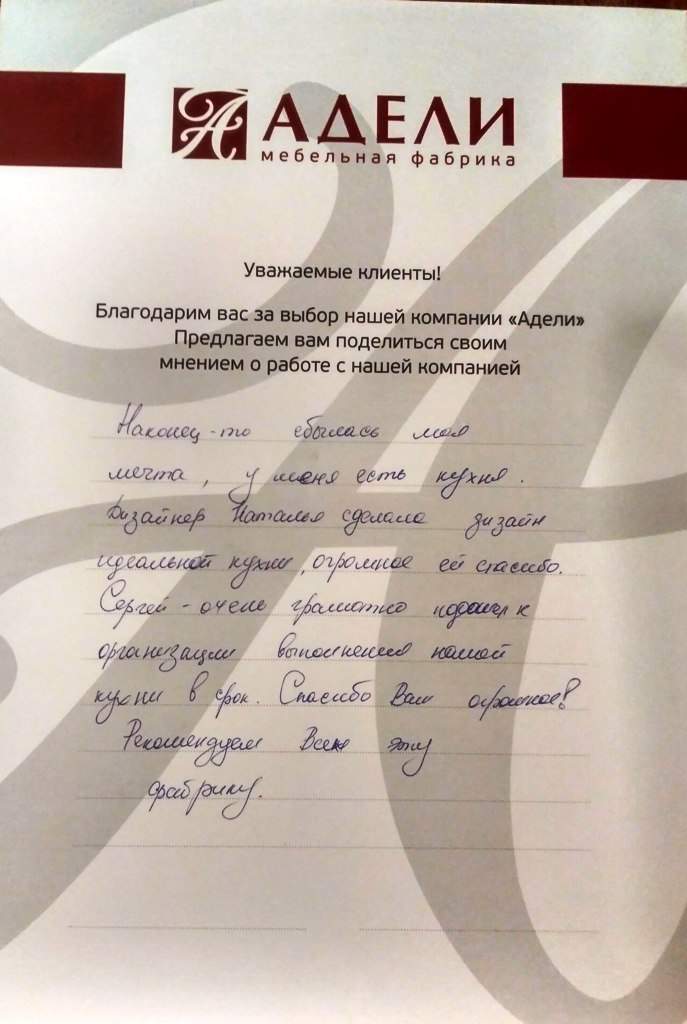 А
АДЕЛИ
мебельная фабрика
Уважаемые клиенты!
Благодарим вас за выбор нашей компании «Адели»
Предлагаем вам поделиться своим
мнением о работе с нашей компанией
Наконец-то сбылась моя
мечта, у меня есть кухня.
Дизайнер Наталья сделала дизайн
идеальной кухни, огромное ей спасибо.
Сергей - очень грамотно подошел к
организации выполнения нашей
кухни в срок. Спасибо Вам огромное!
Рекомендуем Всем эту
фабрику.